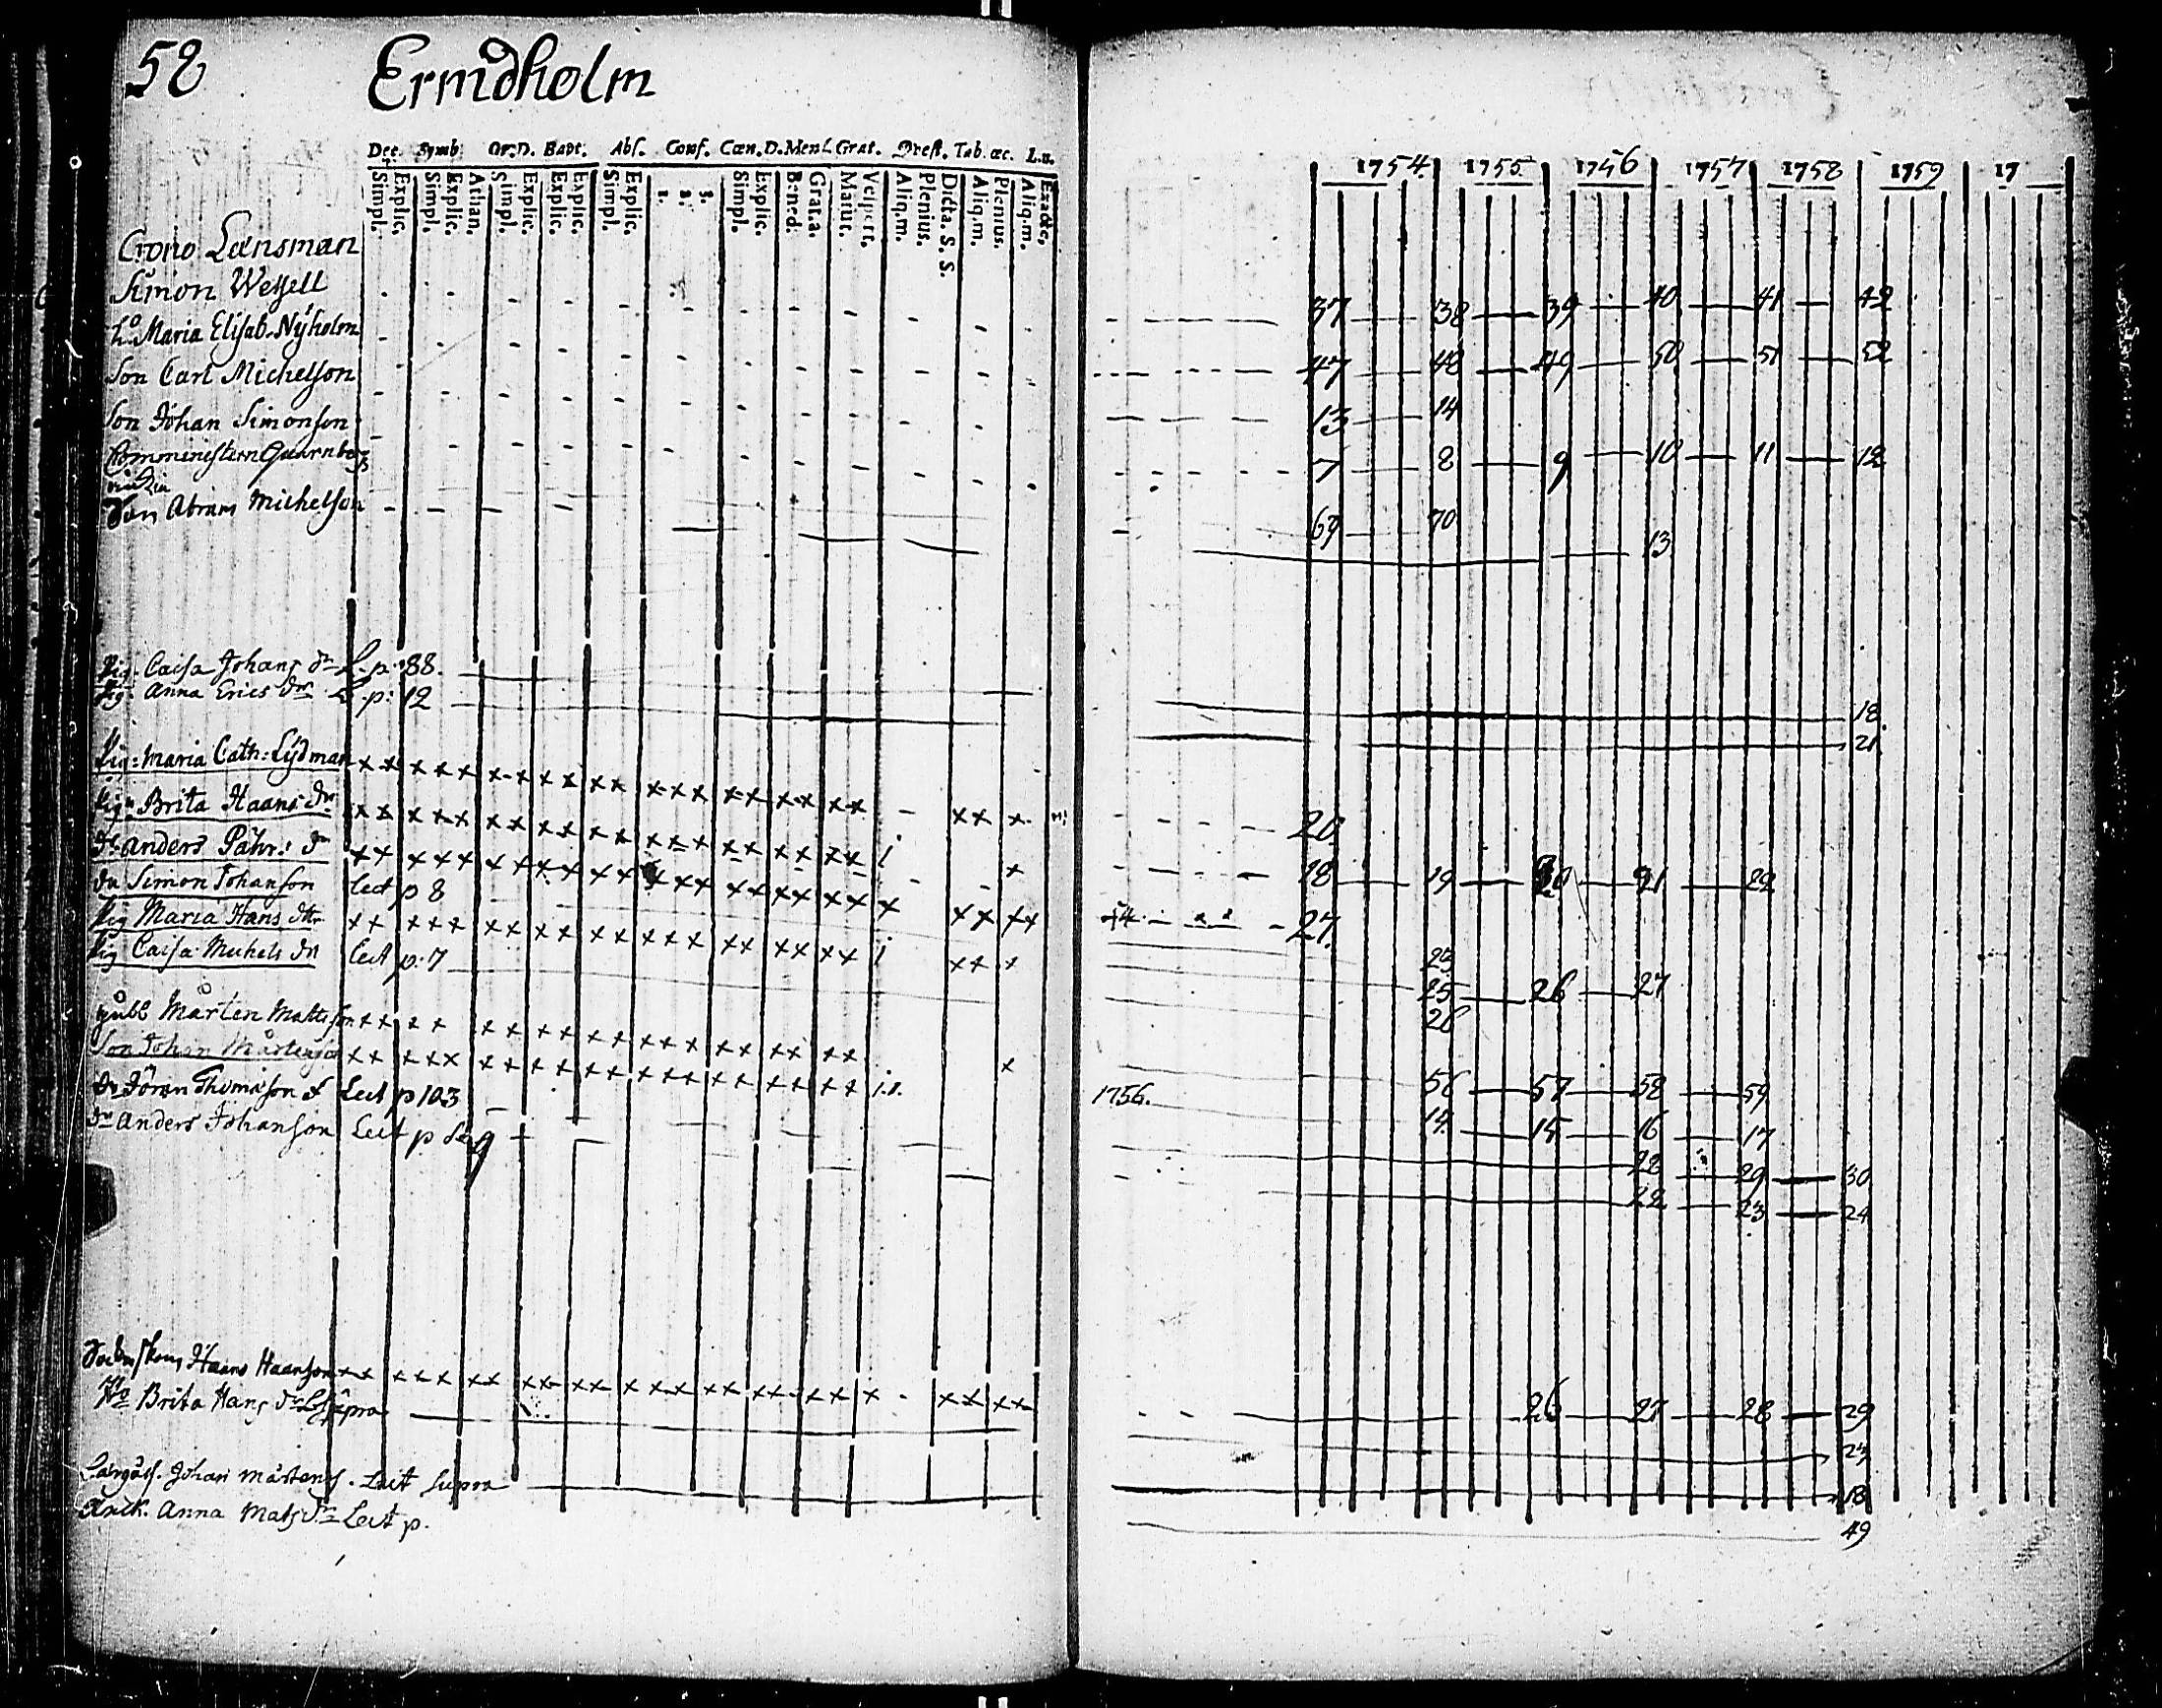 58 Ermdholm
Dec. Symb. Or.D. Bapt. Abs. Conf. Cœn.D. Mens. Grat. Præst. Tab. œc. L.n.
Simpl. Explic. Simpl. Explic. Athan. Simpl. Explic. Explic. Explic. Simpl. Explic. 1. 2. 3. Simpl. Explic. Bened. Grat.a. Matut. Vespert. Aliq.m. Plenius. Dicta. S. S. Aliq.m. Plenius. Aliq.m. Exacte.
1754. 1755. 1756 1757 1758 1759 17
Crono Länsman
Simon Wessell 37 38 39 40 41 42
h:o Maria Elisab. Nyholm 47 48 49 50 51 52
Son Carl Michelson 13 14
Son Johan Simonson 7 8 9 10 11 12
Comministern Quarnberg
Son Abram Michelson 69 70 13
Pig. Caisa Johans dr L. p. 88. 18.
Pig. Anna Erics dr L. p: 12 21
Pig: Maria Cath: Lydman x x x x x x x x x x x x x x x x x x x x x x x 20
Pig: Brita Haans dr x x x x x x x x x x x x x x x x x x x x i x 18 19 20 21 22
dr Anders Påhr: x x x x x x x x x x x x x x x x x x x x x x x x x 27.
dr Simon Johanson lect p 8 25
Pig Maria Hans dtr x x x x x x x x x x x x x x x x x x x x i x x x 25 26 27
Pig Caisa Michels dr lect p: 7 26
gubb Mårten Mattsson x x x x x x x x x x x x x x x x x x x x 56 57 58 59
Son Johan Mårtenson x x x x x x x x x x x x x x x x x x x x 14. 15 16 17
dr Jöran Thomasson Lect p 103 1756. 28 29 30
dr Anders Johanson Lect p 22 23 24
Haans Haanson x x x x x x x x x x x x x x x x x x x x x x x x x x 26 27 28 29
Brita Hans dr L. supra 23
Johan Mårtens. Lect supra 18
Anna Mats dr Lect p. 49